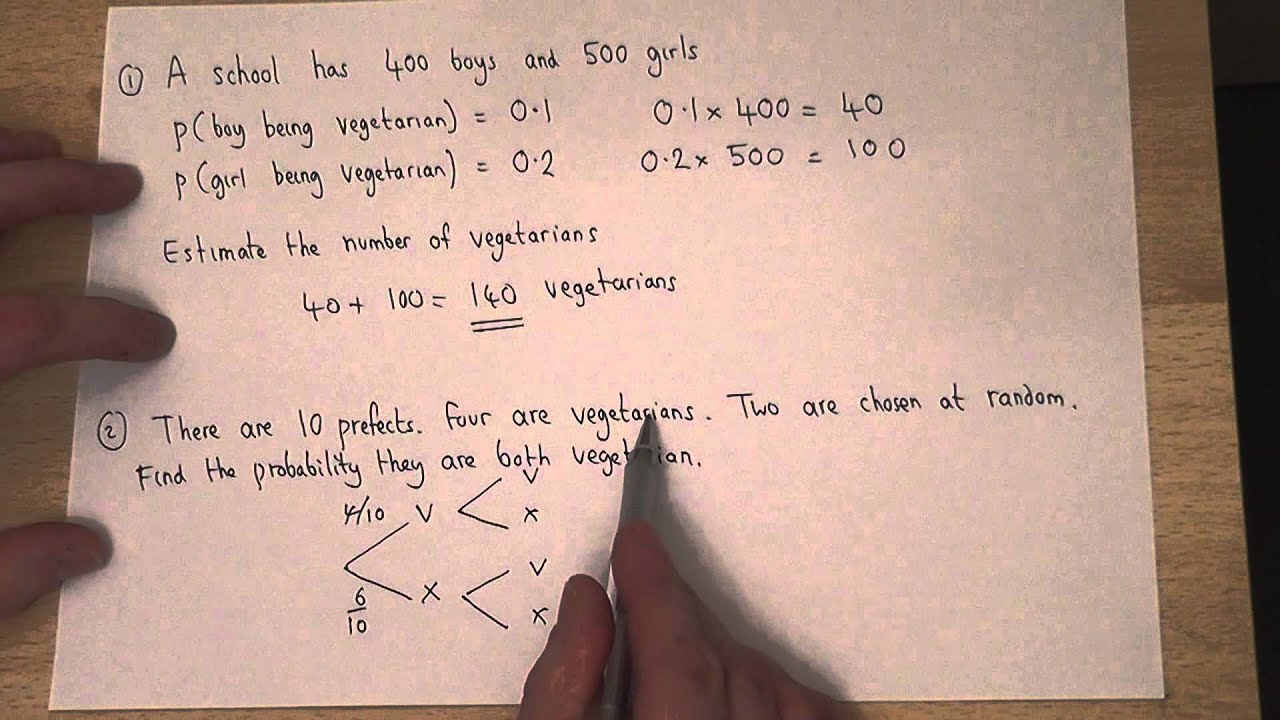 ① A school has 400 boys and 500 girls
p(boy being vegetarian) = 0.1 0.1 x 400 = 40
p(girl being vegetarian) = 0.2 0.2 x 500 = 100
Estimate the number of vegetarians
40 + 100 = 140 vegetarians
② There are 10 prefects. Four are vegetarians. Two are chosen at random.
Find the probability they are both vegetarian.
4/10 V V
x
x V
6/10 x